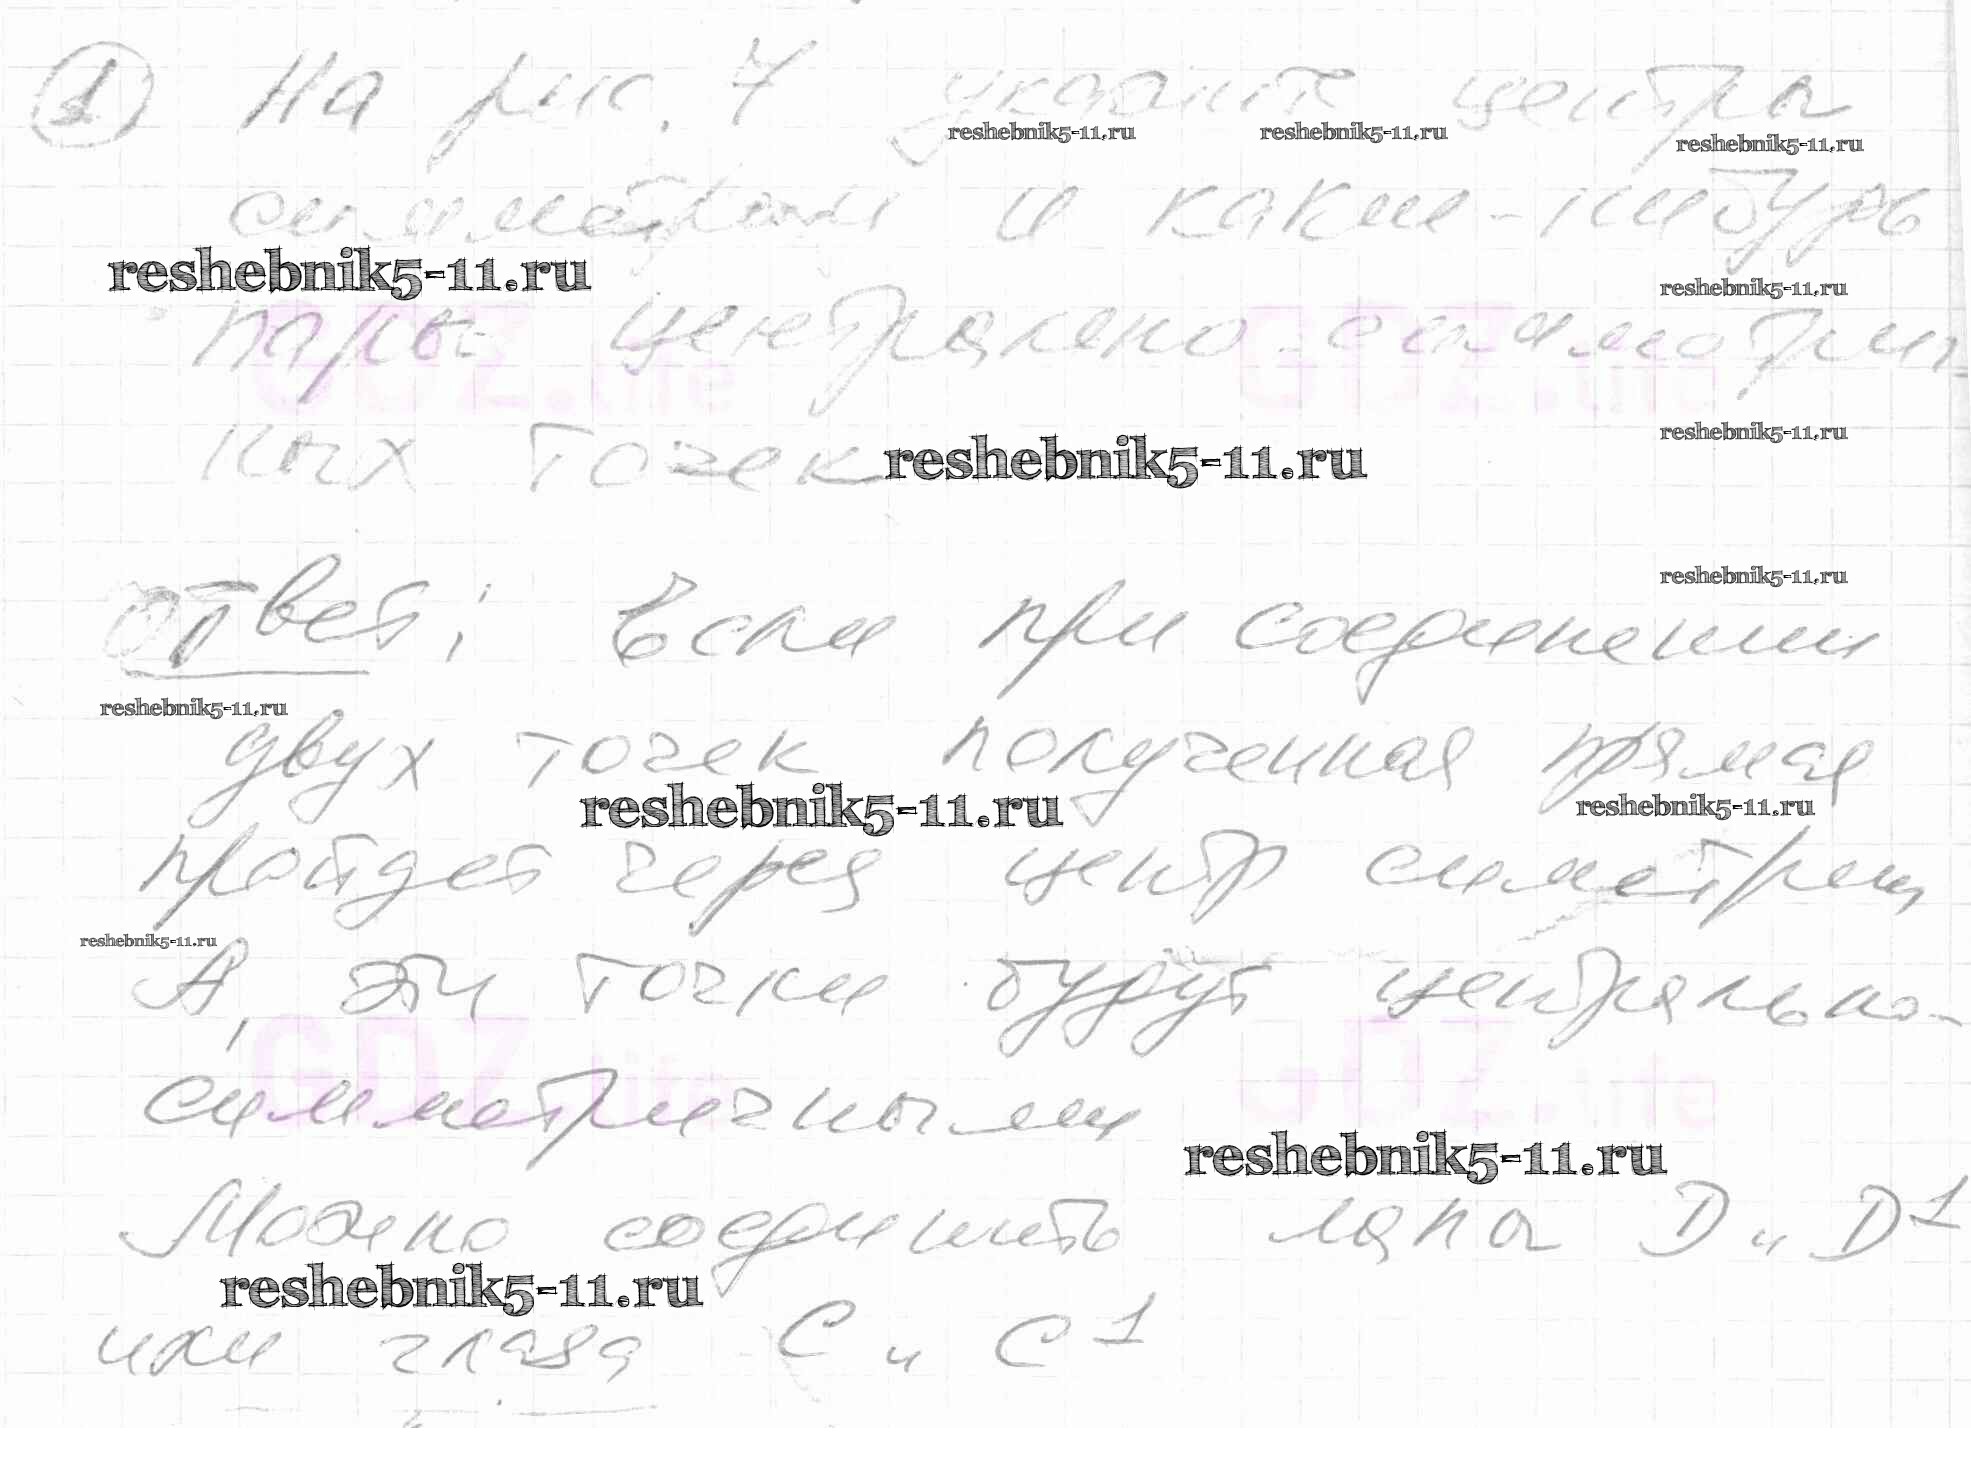 1 На рис. 7 укажите центры
reshebnik5-11.ru reshebnik5-11.ru reshebnik5-11.ru
симметрии и какие-нибудь
reshebnik5-11.ru
reshebnik5-11.ru
пары центрально-симметрич-
GDZ.life GDZ.life
ных точек
reshebnik5-11.ru
reshebnik5-11.ru
reshebnik5-11.ru
Ответ: Если при соединении
reshebnik5-11.ru
двух точек полученная прямая
reshebnik5-11.ru reshebnik5-11.ru
пройдет через центр симетрии
reshebnik5-11.ru
А, эти точки будут центрально-
GDZ.life GDZ.life
симметричными
reshebnik5-11.ru
Можно соединить лапы D и D1
reshebnik5-11.ru
или глаза C и C1